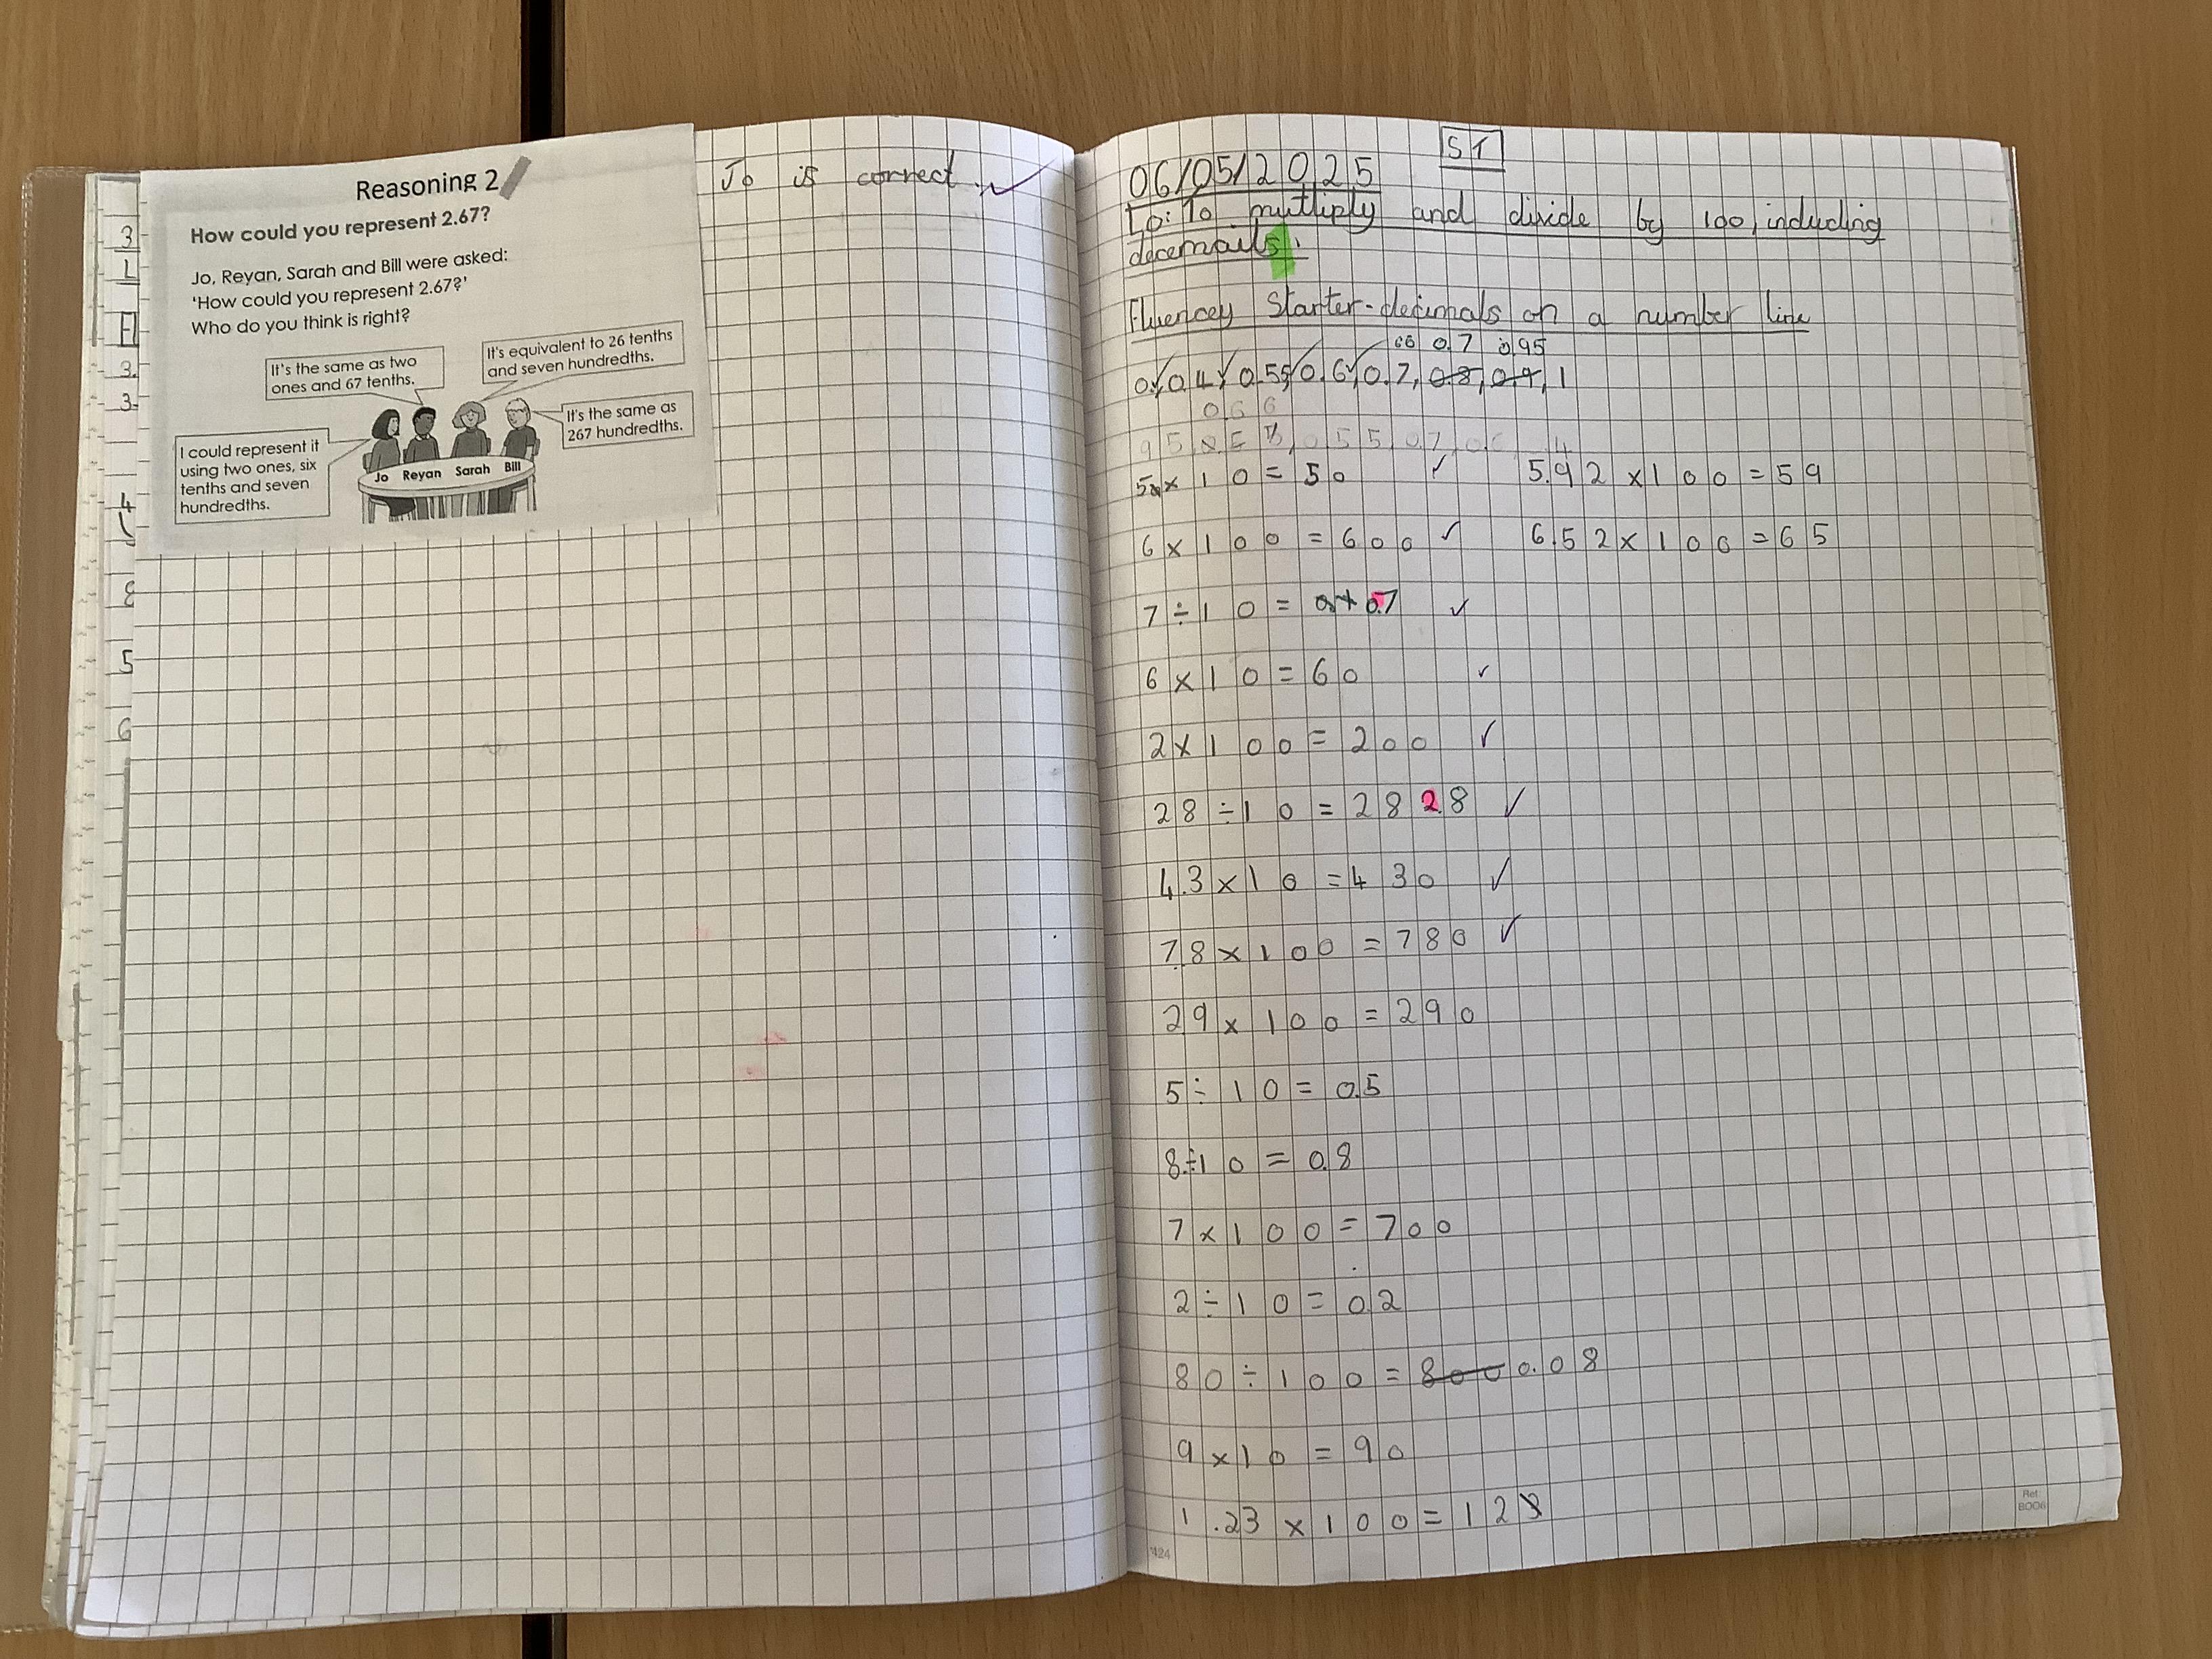 Reasoning 2
How could you represent 2.67?
Jo, Reyan, Sarah and Bill were asked:
'How could you represent 2.67?'
Who do you think is right?
It's the same as two
ones and 67 tenths.
It's equivalent to 26 tenths
and seven hundredths.
I could represent it
using two ones, six
tenths and seven
hundredths.
It's the same as
267 hundredths.
Jo Reyan Sarah Bill
Jo is correct.
3
1
3.
3.
4
8
5
6
ST
06/05/2025
Lo: To multiply and divide by 100, including
decemails.
Fluencey Starter - decimals on a number line
0.7 0.95
0, 0.4, 0.55, 0.6, 0.7, 0.8, 0.9, 1
066
5 x 10 = 50
5.92 x 100 = 59
6 x 100 = 600
6.52 x 100 = 65
7 ÷ 10 = 0.7
6 x 10 = 60
2 x 100 = 200
28 ÷ 10 = 28 2.8
4.3 x 10 = 430
7.8 x 100 = 780
29 x 100 = 290
5 ÷ 10 = 0.5
8 ÷ 10 = 0.8
7 x 100 = 700
2 ÷ 10 = 0.2
80 ÷ 100 = 800 0.08
9 x 10 = 90
1.23 x 100 = 123
424
Ref:
BOO6